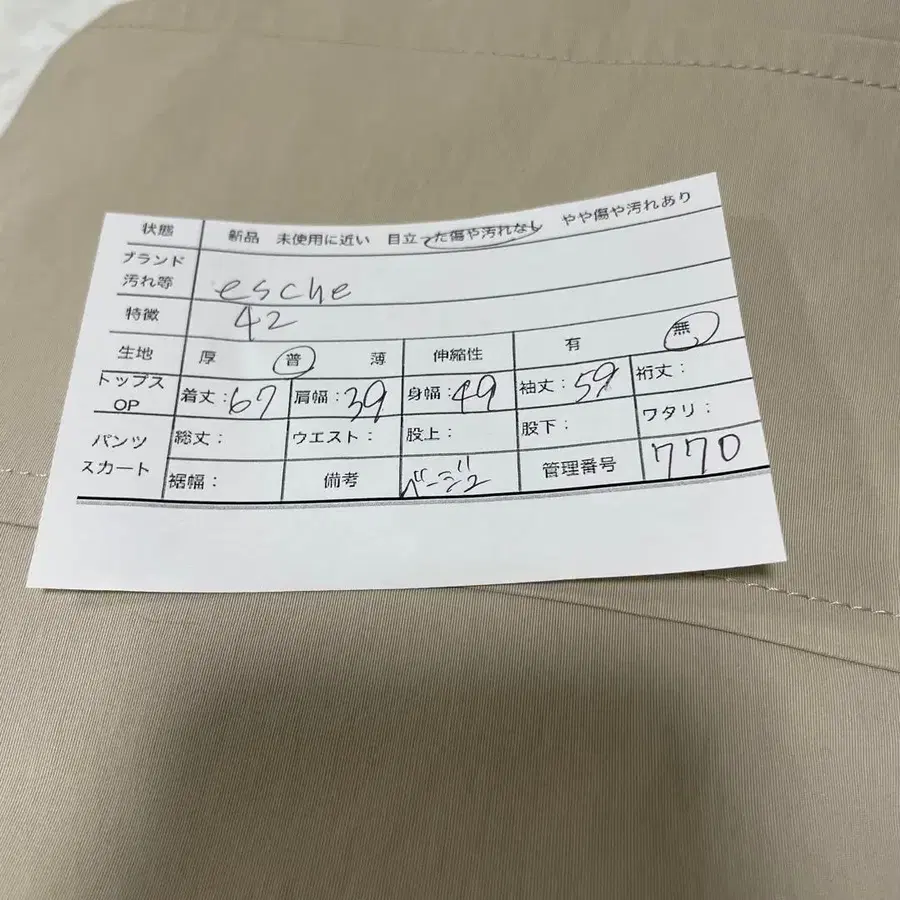 状態 新品 未使用に近い 目立った傷や汚れなし やや傷や汚れあり
ブランド
汚れ等 esche
特徴 42
生地 厚 普 薄 伸縮性 有 無
トップス
OP 着丈:67 肩幅:39 身幅:49 袖丈:59 裄丈:
パンツ
スカート 総丈: ウエスト: 股上: 股下: ワタリ:
裾幅: 備考 ベージュ 管理番号 770